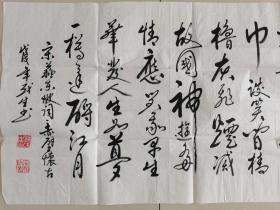 巾談笑間檣
櫓灰飛煙滅
故國神遊多
情應笑我早生
華髮人生如夢
一樽還酹江月
宋蘇東坡詞赤壁懷古